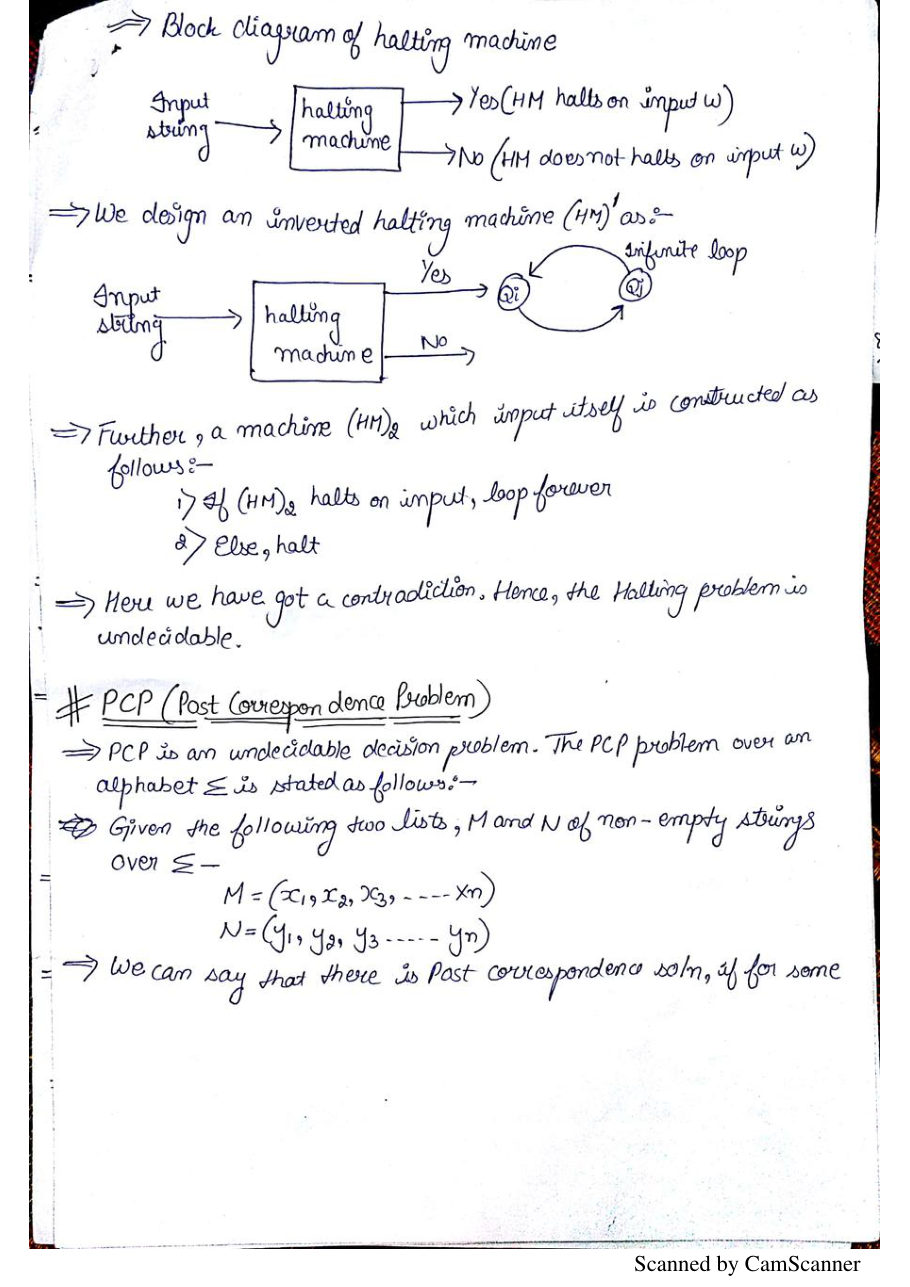 ⇒ Block diagram of halting machine
Input string → halting machine → Yes (HM halts on input w)
→ No (HM does not halts on input w)
⇒ We design an inverted halting machine (HM)' as:-
Infinite loop
Input string → halting machine Yes → Qi Qj
No →
⇒ Further, a machine (HM)2 which input itself is constructed as
follows:-
1) If (HM)2 halts on input, loop forever
2) Else, halt
⇒ Here we have got a contradiction. Hence, the Halting problem is
undecidable.
# PCP (Post Correspondence Problem)
⇒ PCP is an undecidable decision problem. The PCP problem over an
alphabet Σ is stated as follows:-
⇒ Given the following two lists, M and N of non-empty strings
over Σ -
M = (x1, x2, x3, ----- xn)
N = (y1, y2, y3 ----- yn)
⇒ We can say that there is Post correspondence soln, if for some
Scanned by CamScanner